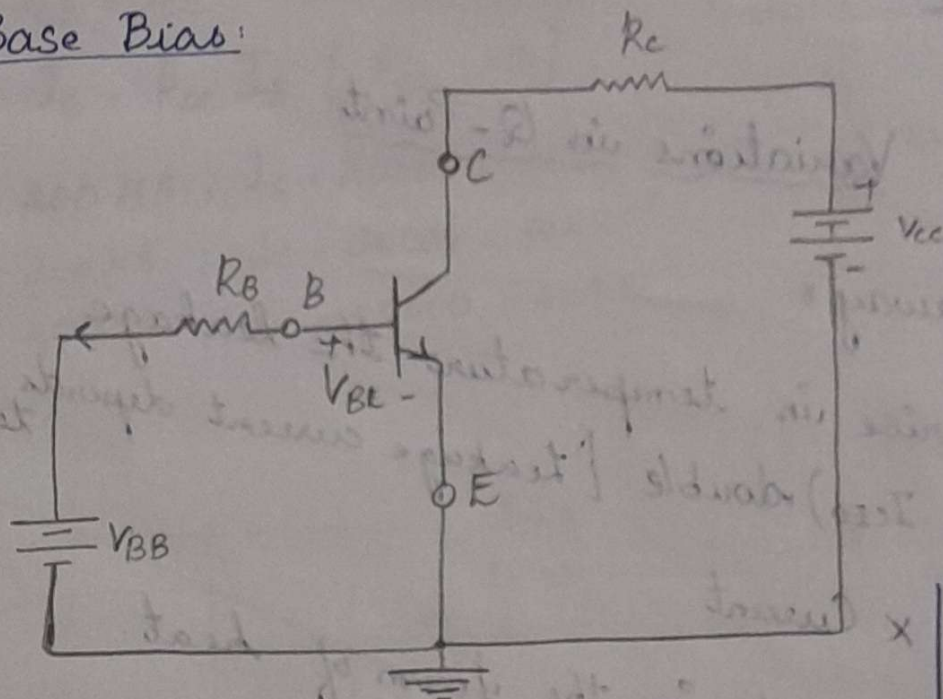 Base Bias:
Rc
C
+
Vcc
-
RB
B
+
VBE -
E
VBB
x